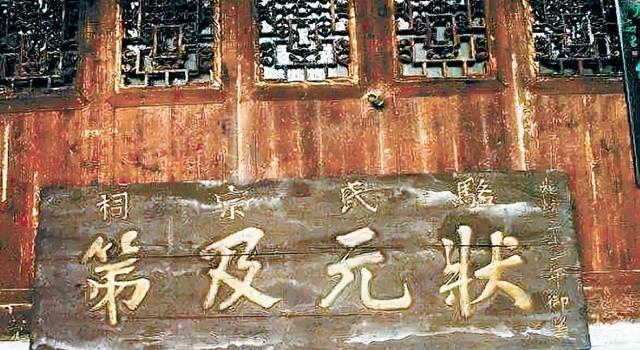 年御
駱氏宗祠
狀元及第